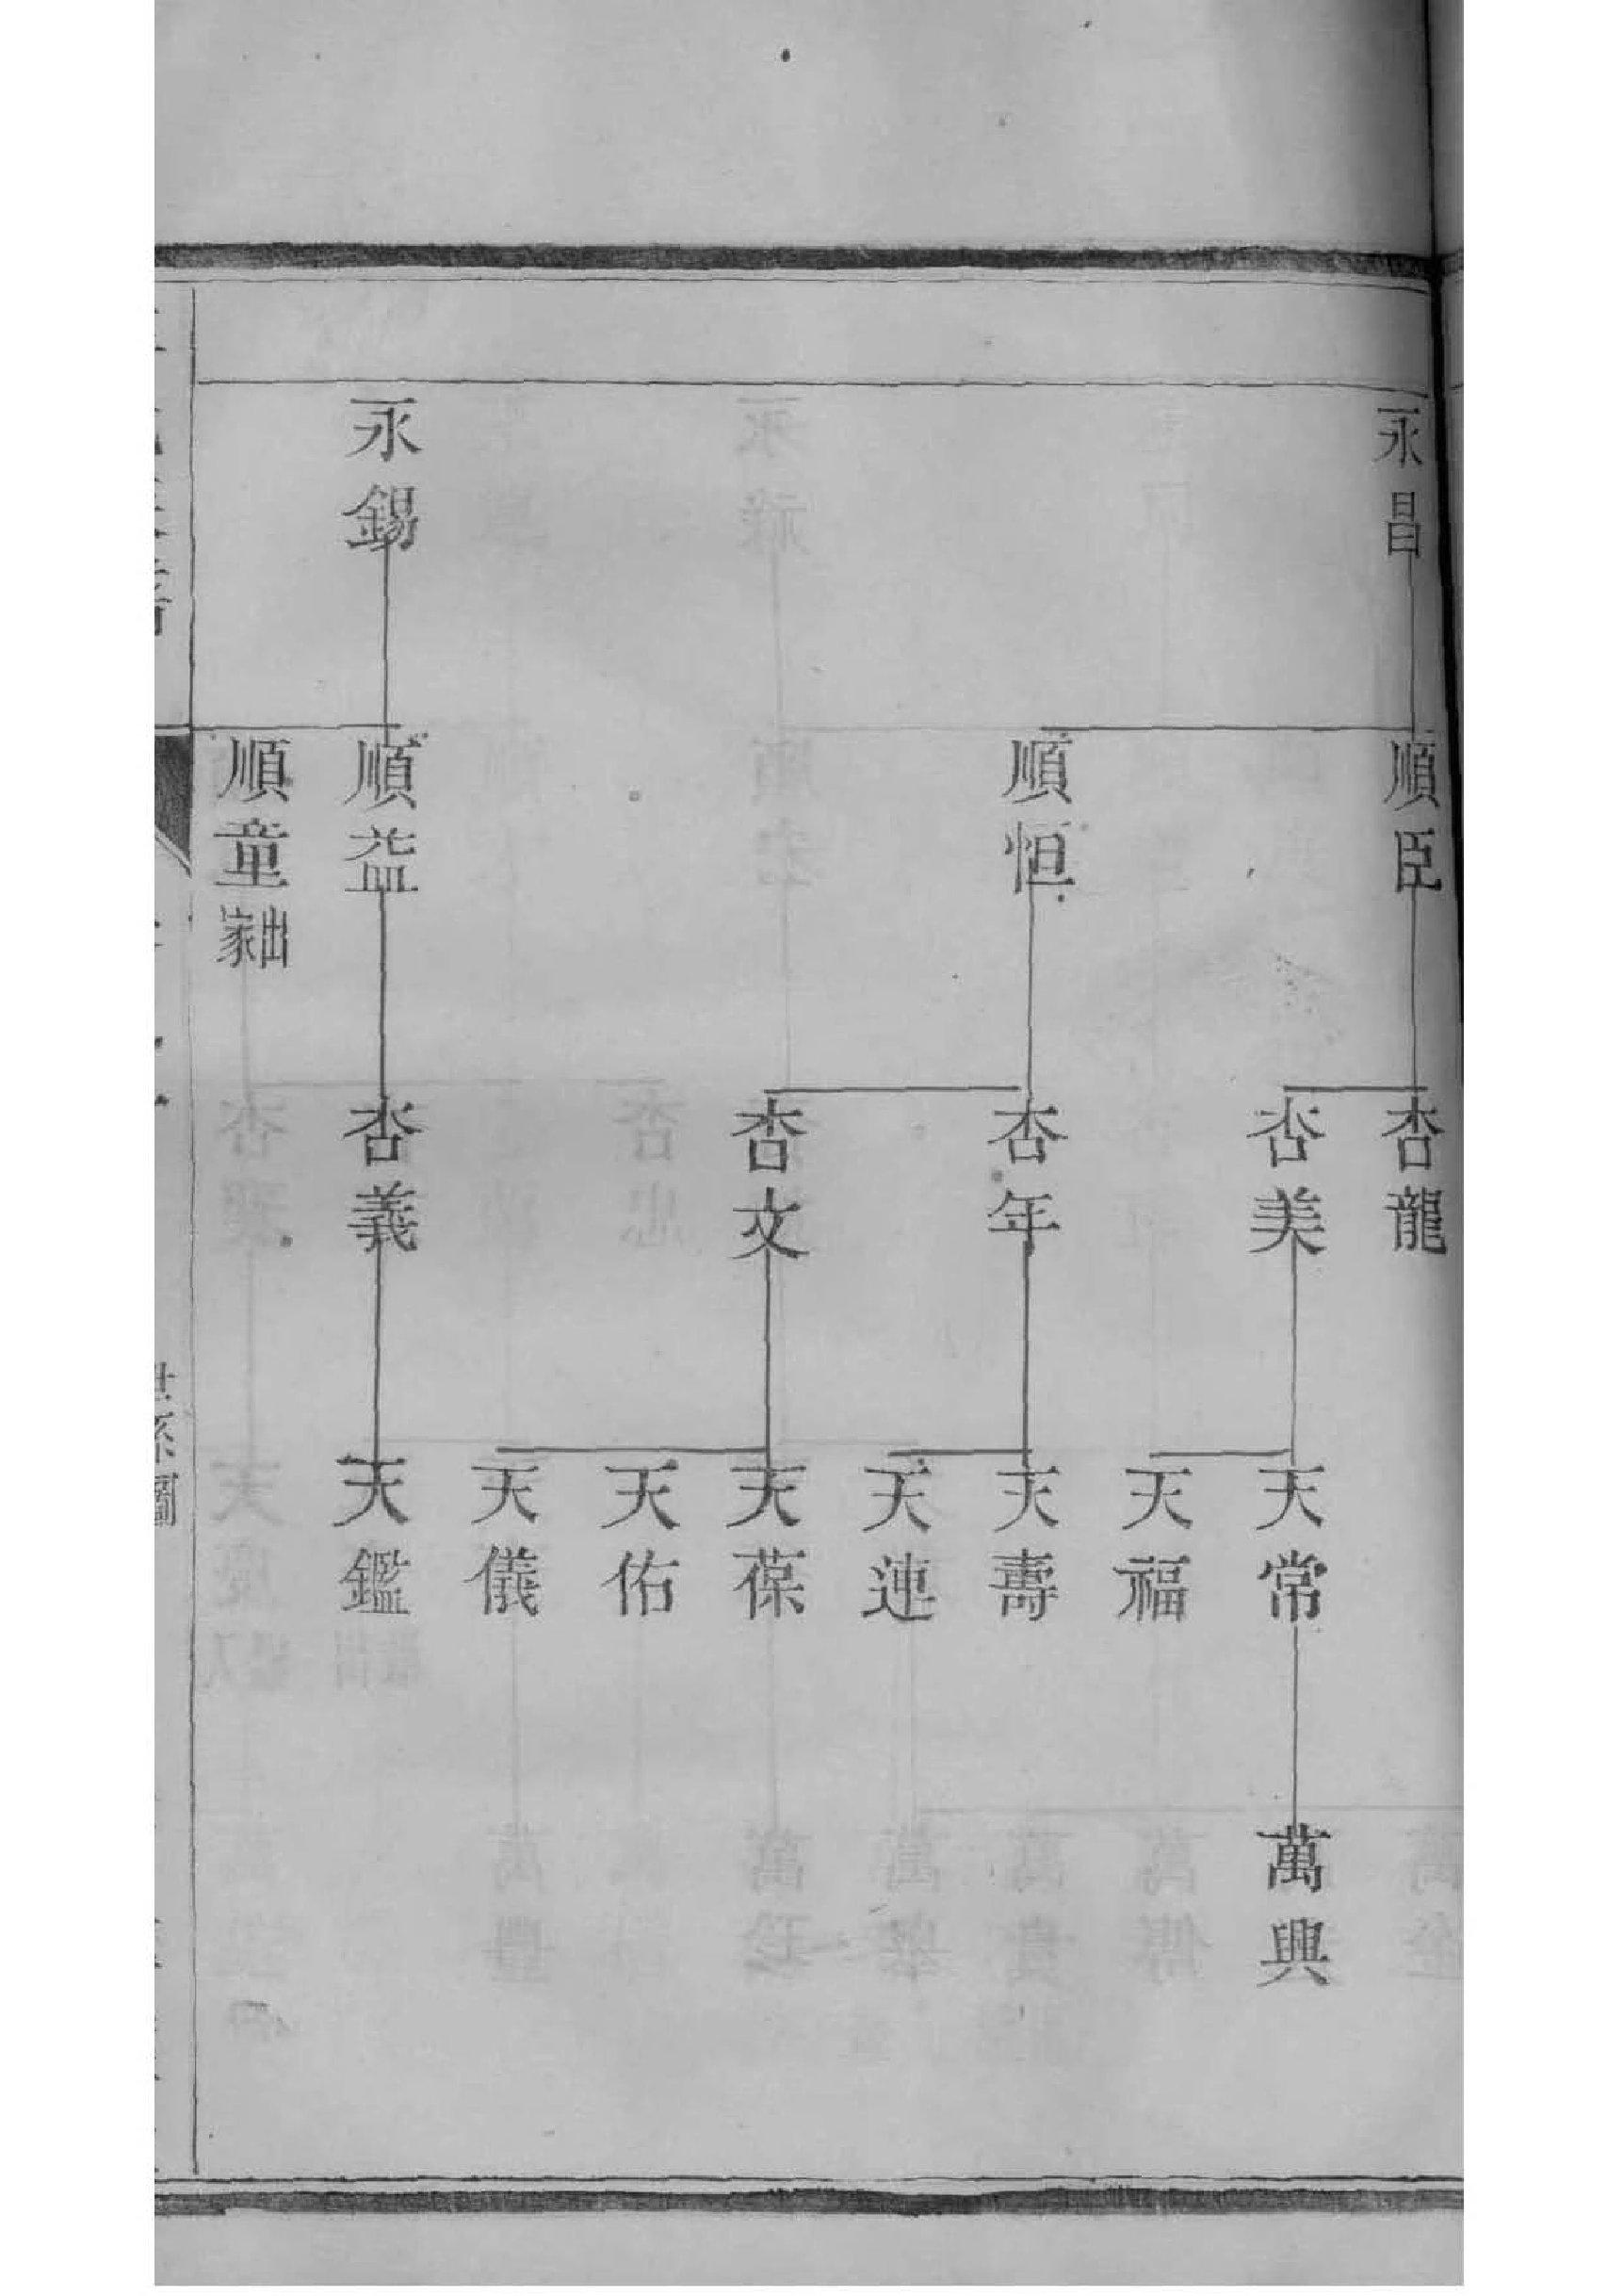 永昌
永錫
順臣
順恒
順益
順童出家
杏龍
杏美
杏年
杏文
杏義
天常
天福
天壽
天連
天葆
天佑
天儀
天鑑
萬興
世系圖